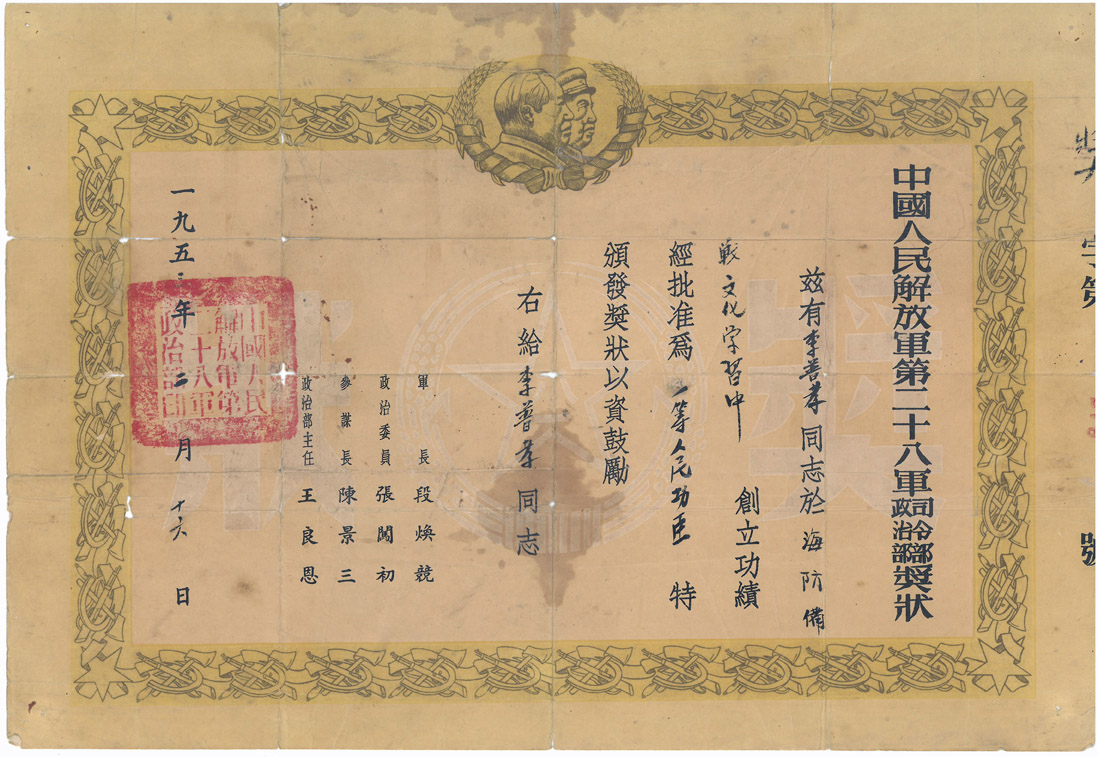 奬字第 號
中國人民解放軍第二十八軍司令部政治部奬狀
兹有李善孝同志於海防備
戰文化学習中 創立功績
經批准爲一等人民功臣 特
頒發奬狀以資鼓勵
右給李善孝同志
軍長 段煥競
政治委員 張闖初
參謀長 陳景三
政治部主任 王良恩
一九五 年二月十六日
中國人民
解放軍第
二十八軍
政治部印
奬狀